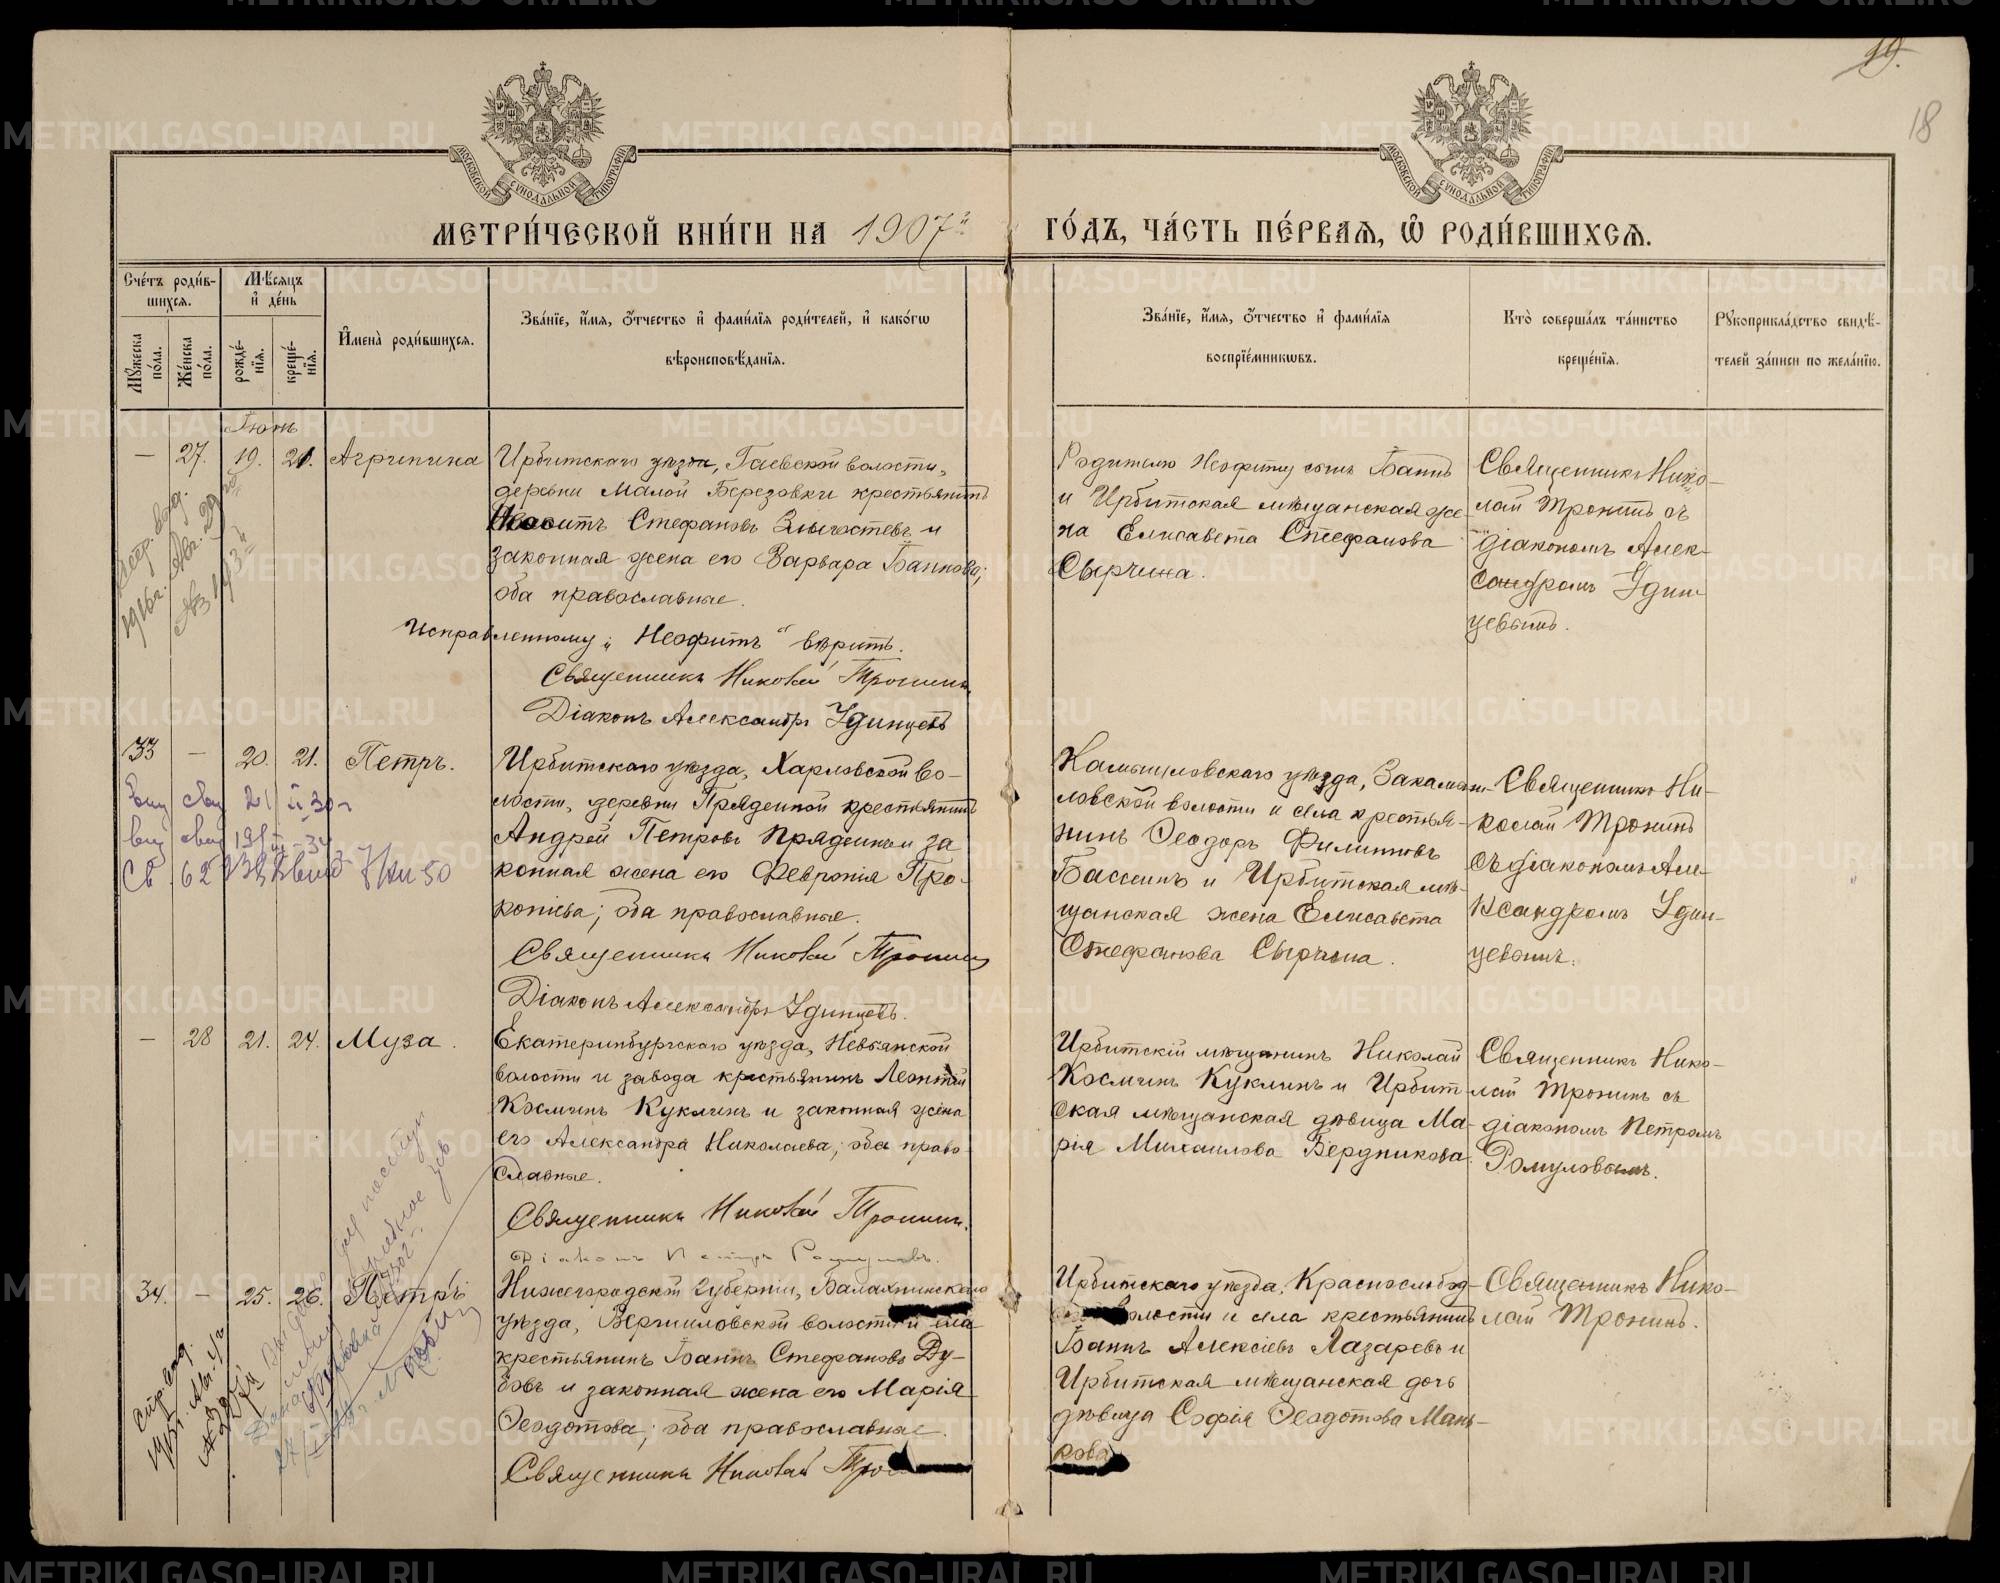 19.
18
МОСКОВСКОЙ СѴНОДАЛЬНОЙ ТИПОГРАФІИ
МОСКОВСКОЙ СѴНОДАЛЬНОЙ ТИПОГРАФІИ
МЕТРИ́ЧЕСКОЙ КНИ́ГИ НА 1907й ГО́ДЪ, ЧА́СТЬ ПЕ́РВАѦ, Ѡ҆ РОДИ́ВШИХСѦ.
Сче́тъ роди́вшихсѧ.
Мꙋ́жеска по́ла.
Же́нска по́ла.
Мѣ́сѧцъ и҆ де́нь
рожде́нїѧ.
креще́нїѧ.
И҆мена̀ роди́вшихсѧ.
Зва́нїе, и҆́мѧ, ѻ҆́тчество и҆ фами́лїѧ роди́телей, и҆ како́гѡ
вѣроисповѣ́данїѧ.
Зва́нїе, и҆́мѧ, ѻ҆́тчество и҆ фами́лїѧ
воспрїе́мникѡвъ.
Кто̀ соверша́лъ та́инство
креще́нїѧ.
Рꙋкоприкла́дство свидѣ́-
телей за́писи по жела́нїю.
Іюнь
— 27. 19. 21. Агрипина
Ирбитскаго уѣзда, Гаевской волости,
деревни Малой Березовки крестьянинъ
Неофитъ Стефановъ Злыгостевъ и
законная жена его Варвара Іоаннова;
оба православные.
Исправленному „Неофитъ" вѣрить.
Священникъ Николай Тронинъ
Діаконъ Александръ Удинцевъ
Родителю Неофиту сынъ Іоаннъ
и Ирбитская мѣщанская же-
на Елисавета Стефанова
Сырчина.
Священникъ Нико-
лай Тронинъ съ
діакономъ Алек-
сандромъ Удин-
цевымъ.
1916г. Авг. 29
33 — 20. 21. Петръ.
Ирбитскаго уѣзда, Харловской во-
лости, деревни Пряденной крестьянинъ
Андрей Петровъ Прядеинъ и за
конная жена его Февронія Про-
копіева; оба православные.
Священникъ Николай Тронинъ
Діаконъ Александръ Удинцевъ.
Камышловскаго уѣзда, Закама-
ловской волости и села крестья-
нинъ Ѳеодоръ Филипповъ
Бассинъ и Ирбитская мѣ-
щанская жена Елисавета
Стефанова Сырчина.
Священникъ Ни-
колай Тронинъ
съ діакономъ Але-
ксандромъ Удин-
цевымъ.
— 28 21. 24. Муза.
Екатеринбургскаго уѣзда, Невьянской
волости и завода крестьянинъ Леонтій
Космичъ Куклинъ и законная жена
его Александра Николаева; оба право-
славные.
Священникъ Николай Тронинъ.
Діаконъ Петръ Ромуловъ.
Ирбитскій мѣщанинъ Николай
Космичъ Куклинъ и Ирбит-
ская мѣщанская дѣвица Ма-
рія Михаилова Бердникова.
Священникъ Нико-
лай Тронинъ съ
діакономъ Петромъ
Ромуловымъ.
34. — 25. 26. Петръ
Нижегородской губерніи, Балахнинскаго
уѣзда, Вершиловской волости и села
крестьянинъ Іоаннъ Стефановъ Ду-
бовъ и законная жена его Марія
Ѳеодотова; оба православные.
Священникъ Николай Трон
Ирбитскаго уѣзда, Краснослобод-
волости и села крестьянинъ
Іоаннъ Алексіевъ Лазаревъ и
Ирбитская мѣщанская дочь
дѣвица Софія Ѳеодотова Мань-
кова
Священникъ Нико-
лай Тронинъ.
METRIKI.GASO-URAL.RU